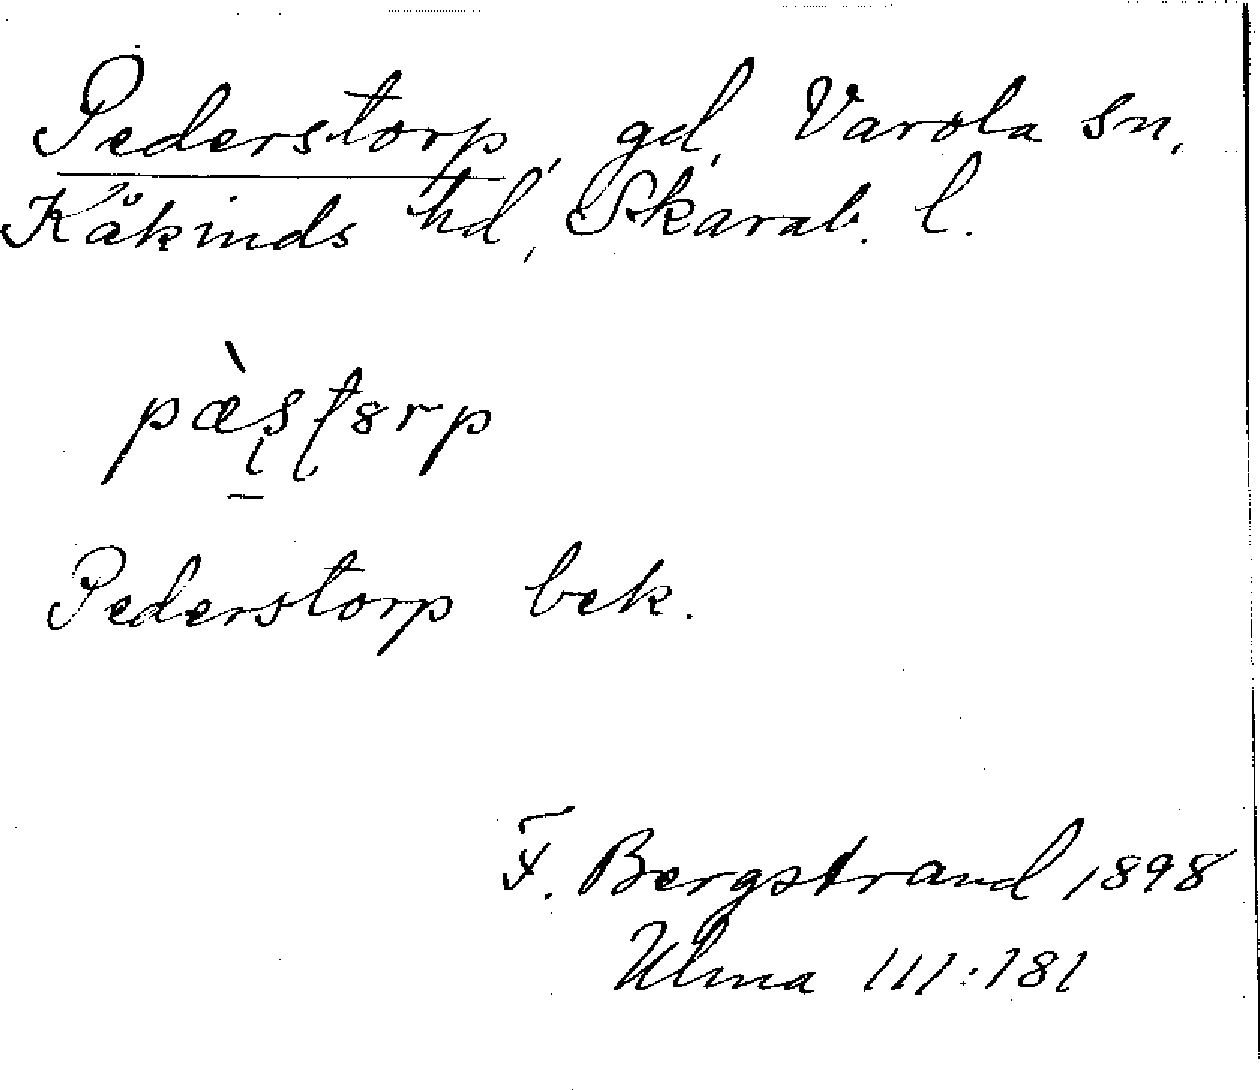 Pederstorp, gd, Varola sn,
Kåkinds hd, Skarab. l.
pæ̀ʂʈ8rp
Pederstorp bek.
F. Bergstrand 1898
Ulma 111:181